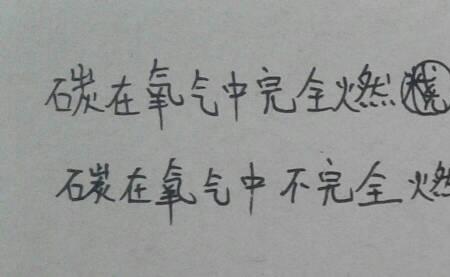 碳在氧气中完全燃烧
碳在氧气中不完全燃